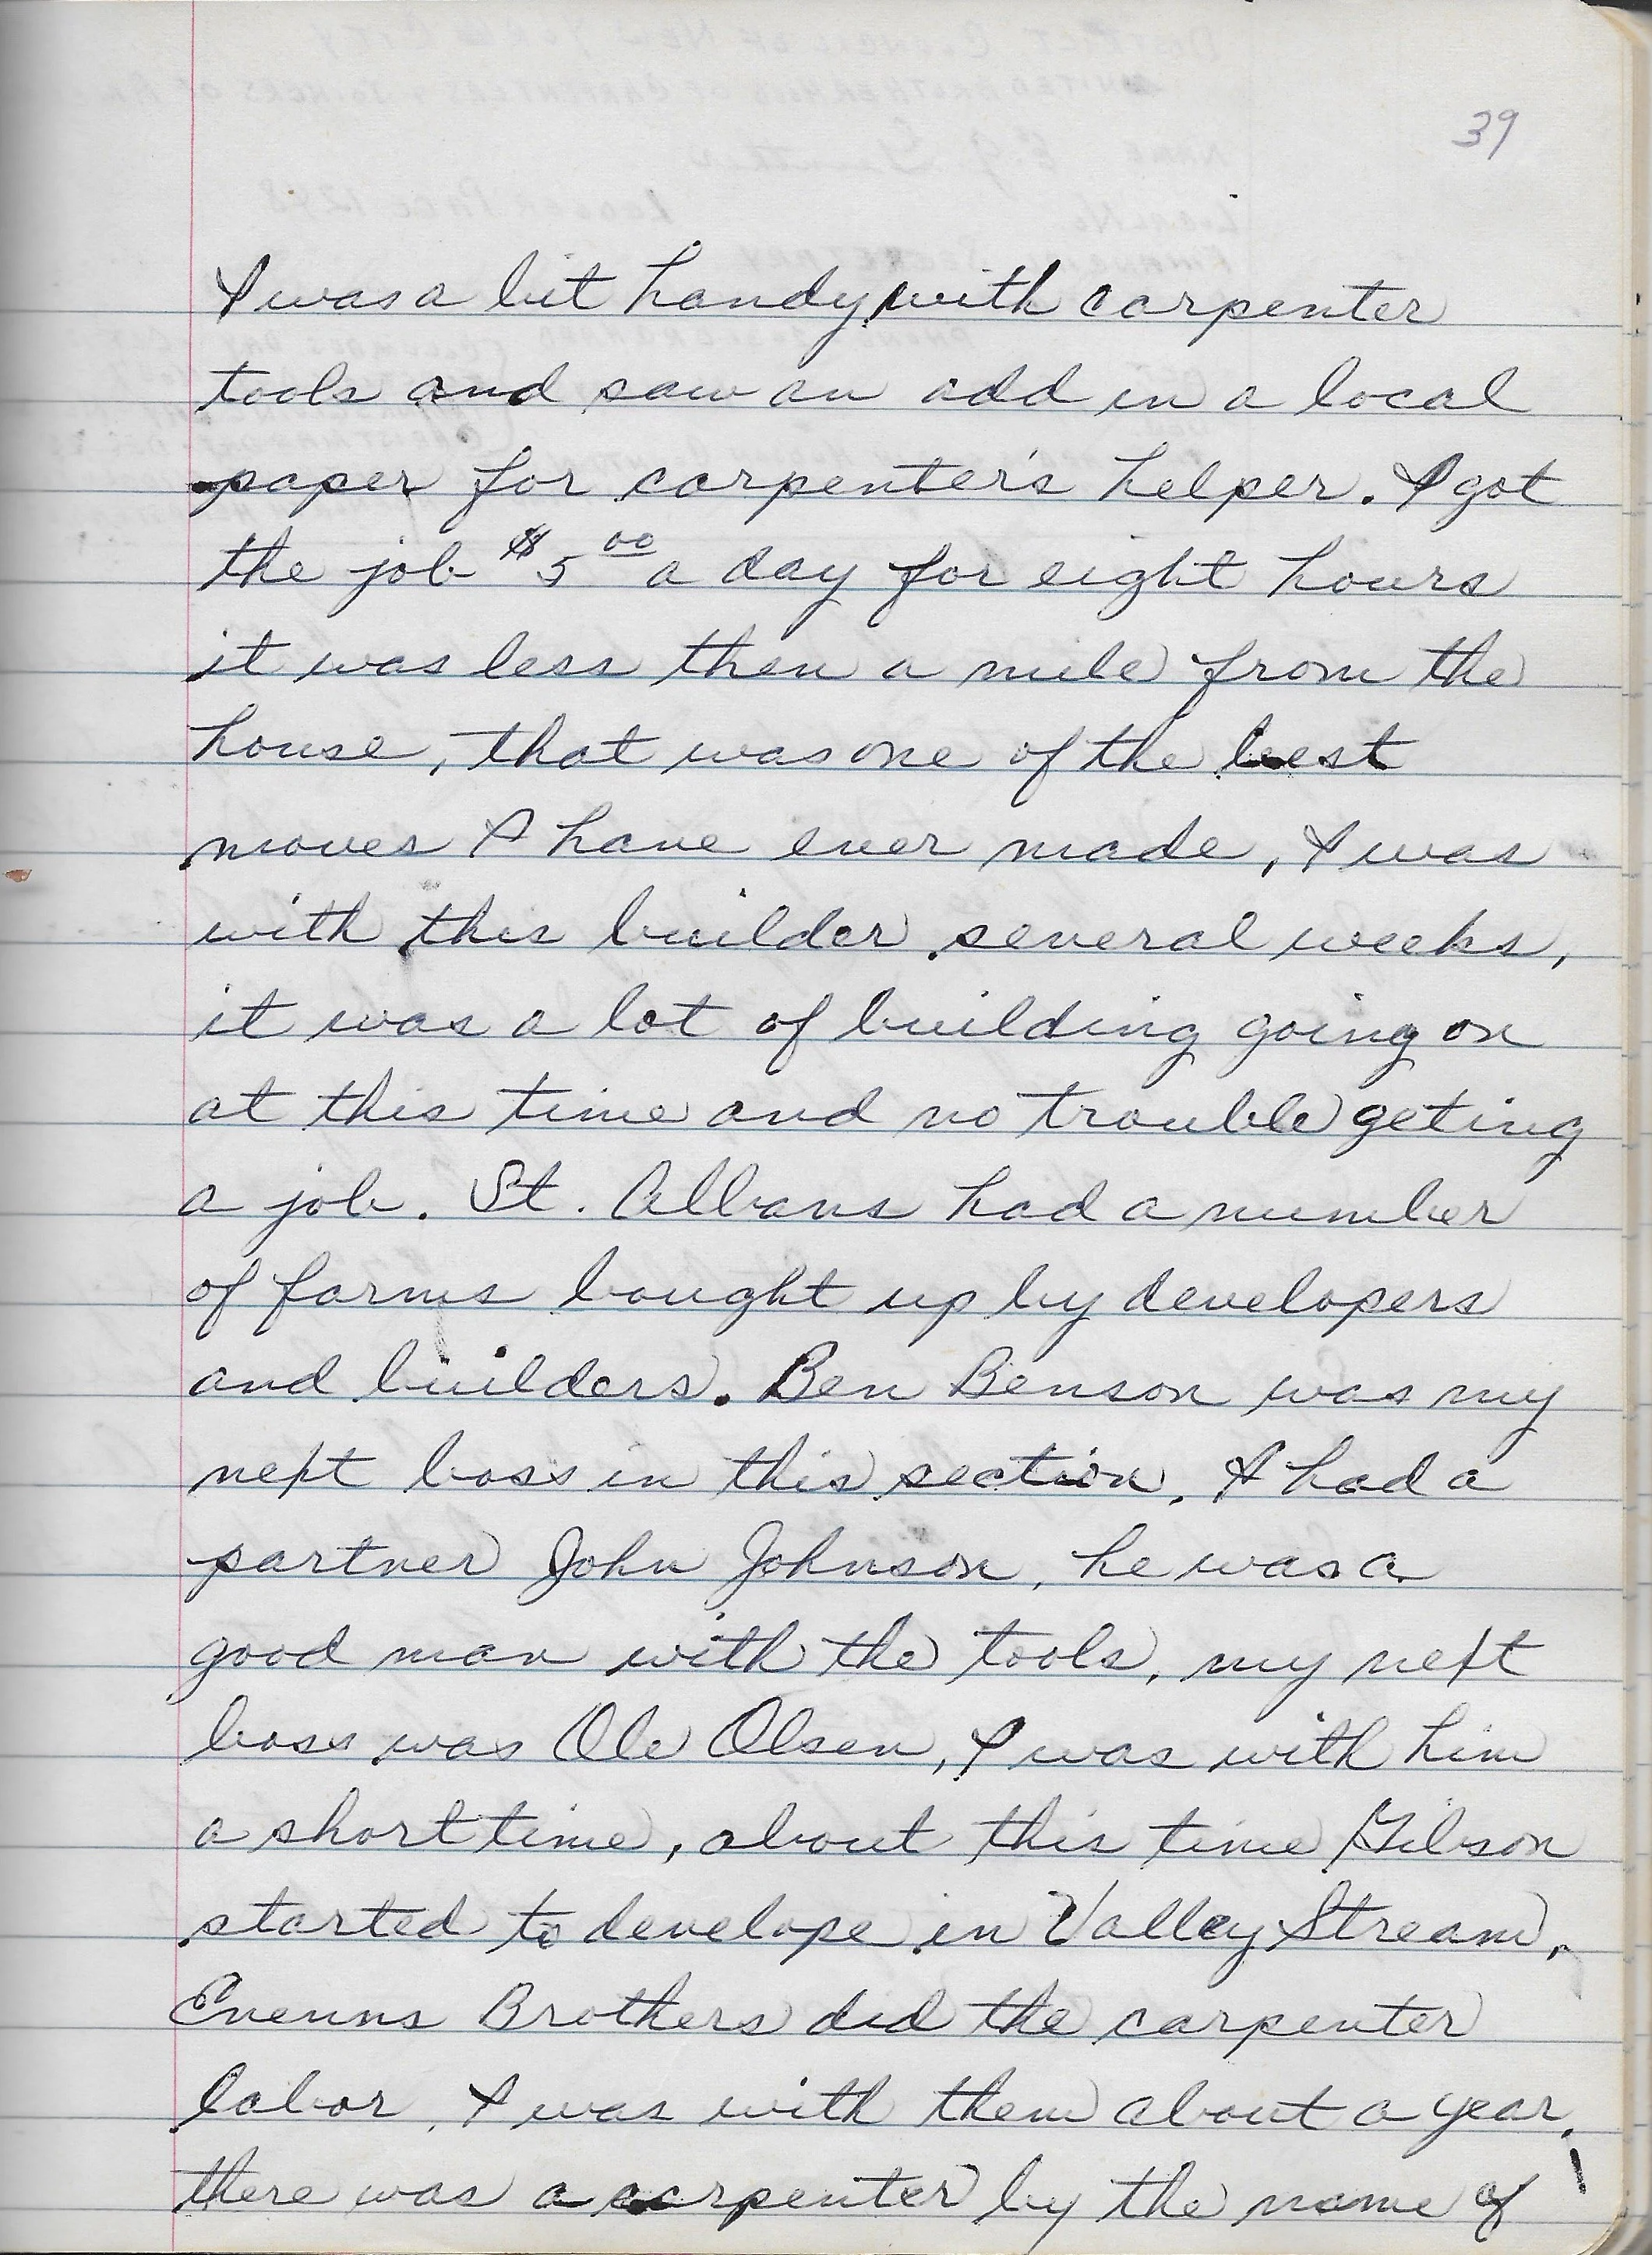 39
I was a bit handy with carpenter
tools and saw an add in a local
paper for carpenter's helper. I got
the job $5 00 a day for eight hours
it was less then a mile from the
house, that was one of the best
moves I have ever made, I was
with this builder several weeks,
it was a lot of building going on
at this time and no trouble geting
a job. St. Albans had a number
of farms bought up by developers
and builders. Ben Benson was my
next boss in this section. I had a
partner John Johnson, he was a
good man with the tools, my next
boss was Ole Olsen, I was with him
a short time, about this time Gibson
started to develope in Valley Stream,
Brothers did the carpenter
labor, I was with them about a year,
there was a carpenter by the name of